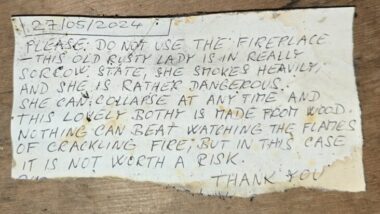 27/05/2024
PLEASE DO NOT USE THE FIREPLACE
– THIS OLD RUSTY LADY IS IN REALLY
SORROW STATE, SHE SMOKES HEAVILY,
AND SHE IS RATHER DANGEROUS.
SHE CAN COLLAPSE AT ANY TIME AND
THIS LOVELY BOTHY IS MADE FROM WOOD.
NOTHING CAN BEAT WATCHING THE FLAMES
OF CRACKLING FIRE, BUT IN THIS CASE
IT IS NOT WORTH A RISK.
THANK YOU